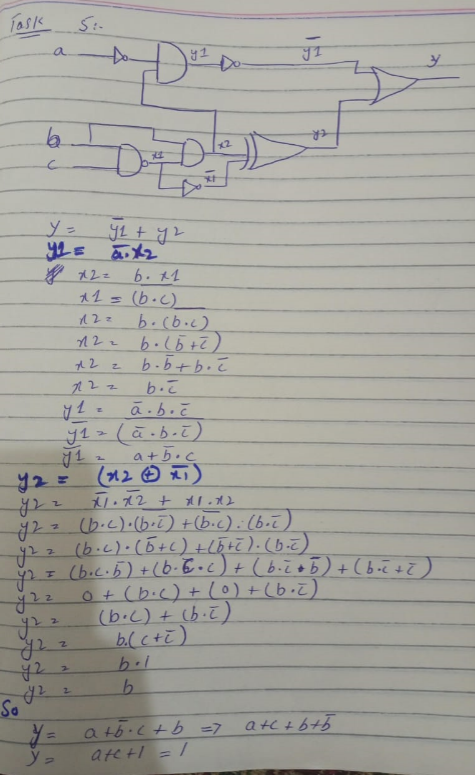 Task 5:-
a y1 y̅1̅ y
b x1 x2 y2
c x̅1̅
y = y̅1̅ + y2
y1 = a̅.x2
x2 = b. x1
x1 = (b̅.̅c̅)
x2 = b.(b̅.̅c̅)
x2 = b.(b̅+c̅)
x2 = b.b̅+b.c̅
x2 = b.c̅
y1 = a̅.b.c̅
y̅1̅ = (a̅.b.c̅)
y̅1̅ = a+b̅.c
y2 = (x2 ⊕ x̅1̅)
y2 = x̅1̅.x̅2̅ + x1.x2
y2 = (b.c).(b̅.̅c̅) + (b̅.̅c̅).(b.c̅)
y2 = (b.c).(b̅+c) + (b̅+c̅).(b.c̅)
y2 = (b.c.b̅)+(b.c.c) + (b.c̅.b̅)+(b.c̅+c̅)
y2 = 0 + (b.c) + (0) + (b.c̅)
y2 = (b.c) + (b.c̅)
y2 = b.(c+c̅)
y2 = b.1
y2 = b
So
y = a+b̅.c+b => a+c+b+b̅
y = a+c+1 = 1